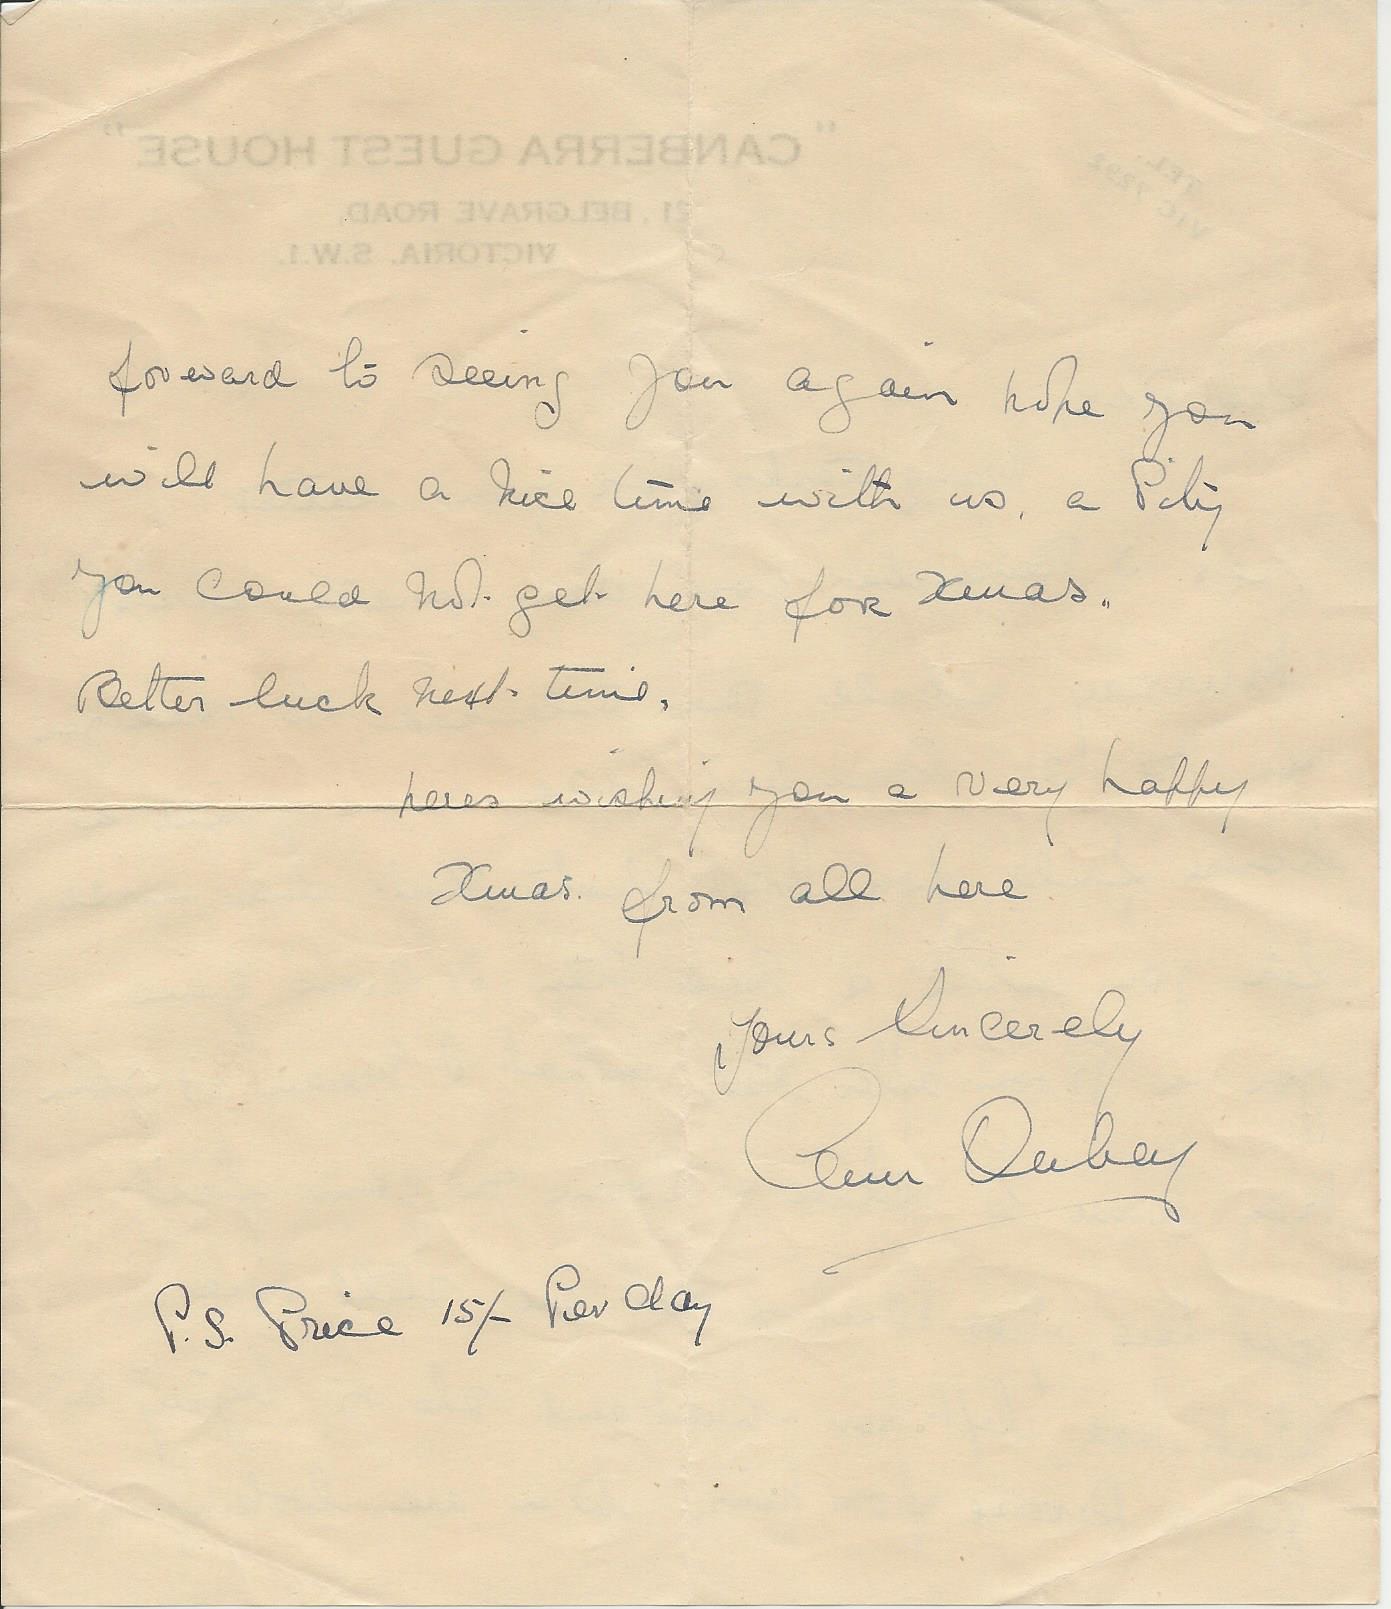 "CANBERRA GUEST HOUSE"
TEL:
VIC 7292
21, BELGRAVE ROAD,
VICTORIA. S.W.1.
forward to seeing you again hope you
will have a nice time with us, a Pity
you could not get here for Xmas.
Better luck next time.
heres wishing you a very happy
Xmas. from all here
yours Sincerely
P.S. Price 15/- Per day